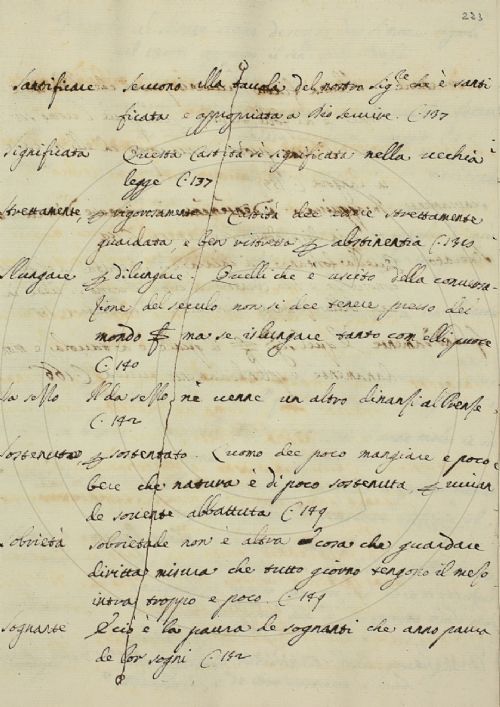 223
Santificare Servono alla tavola del nostro Sig.re che è santi
ficata e appropriata a Dio servire. C. 137
significata Questa Castità si significata nella vecchia
legge C. 137
strettamente, p rigorosamente. Castità dee essere strettamente
guardata e ben ristretta p abstinentia C. 140
slungare p dilungare. Quelli che è uscito della conversa
zione del secolo non si dee tenere presso del
mondo ma se islungare tanto com elli puote
C. 140
da sesto N da sesto, ne venne un altro dinanzi al Prense.
C. 142
sostenuta, p sostentato. L'uomo dee poco mangiare e poco
bere che natura è di poco sostenuta, p vivan
de sovente abbattuta C. 149
sobrietà sobrietade non è altra cosa che guardare
diritta misura che tutto giorno tengono il meso
intra troppo e poco. C. 149
sognante E ciò è la paura de sognanti che anno paura
de lor sogni C. 152